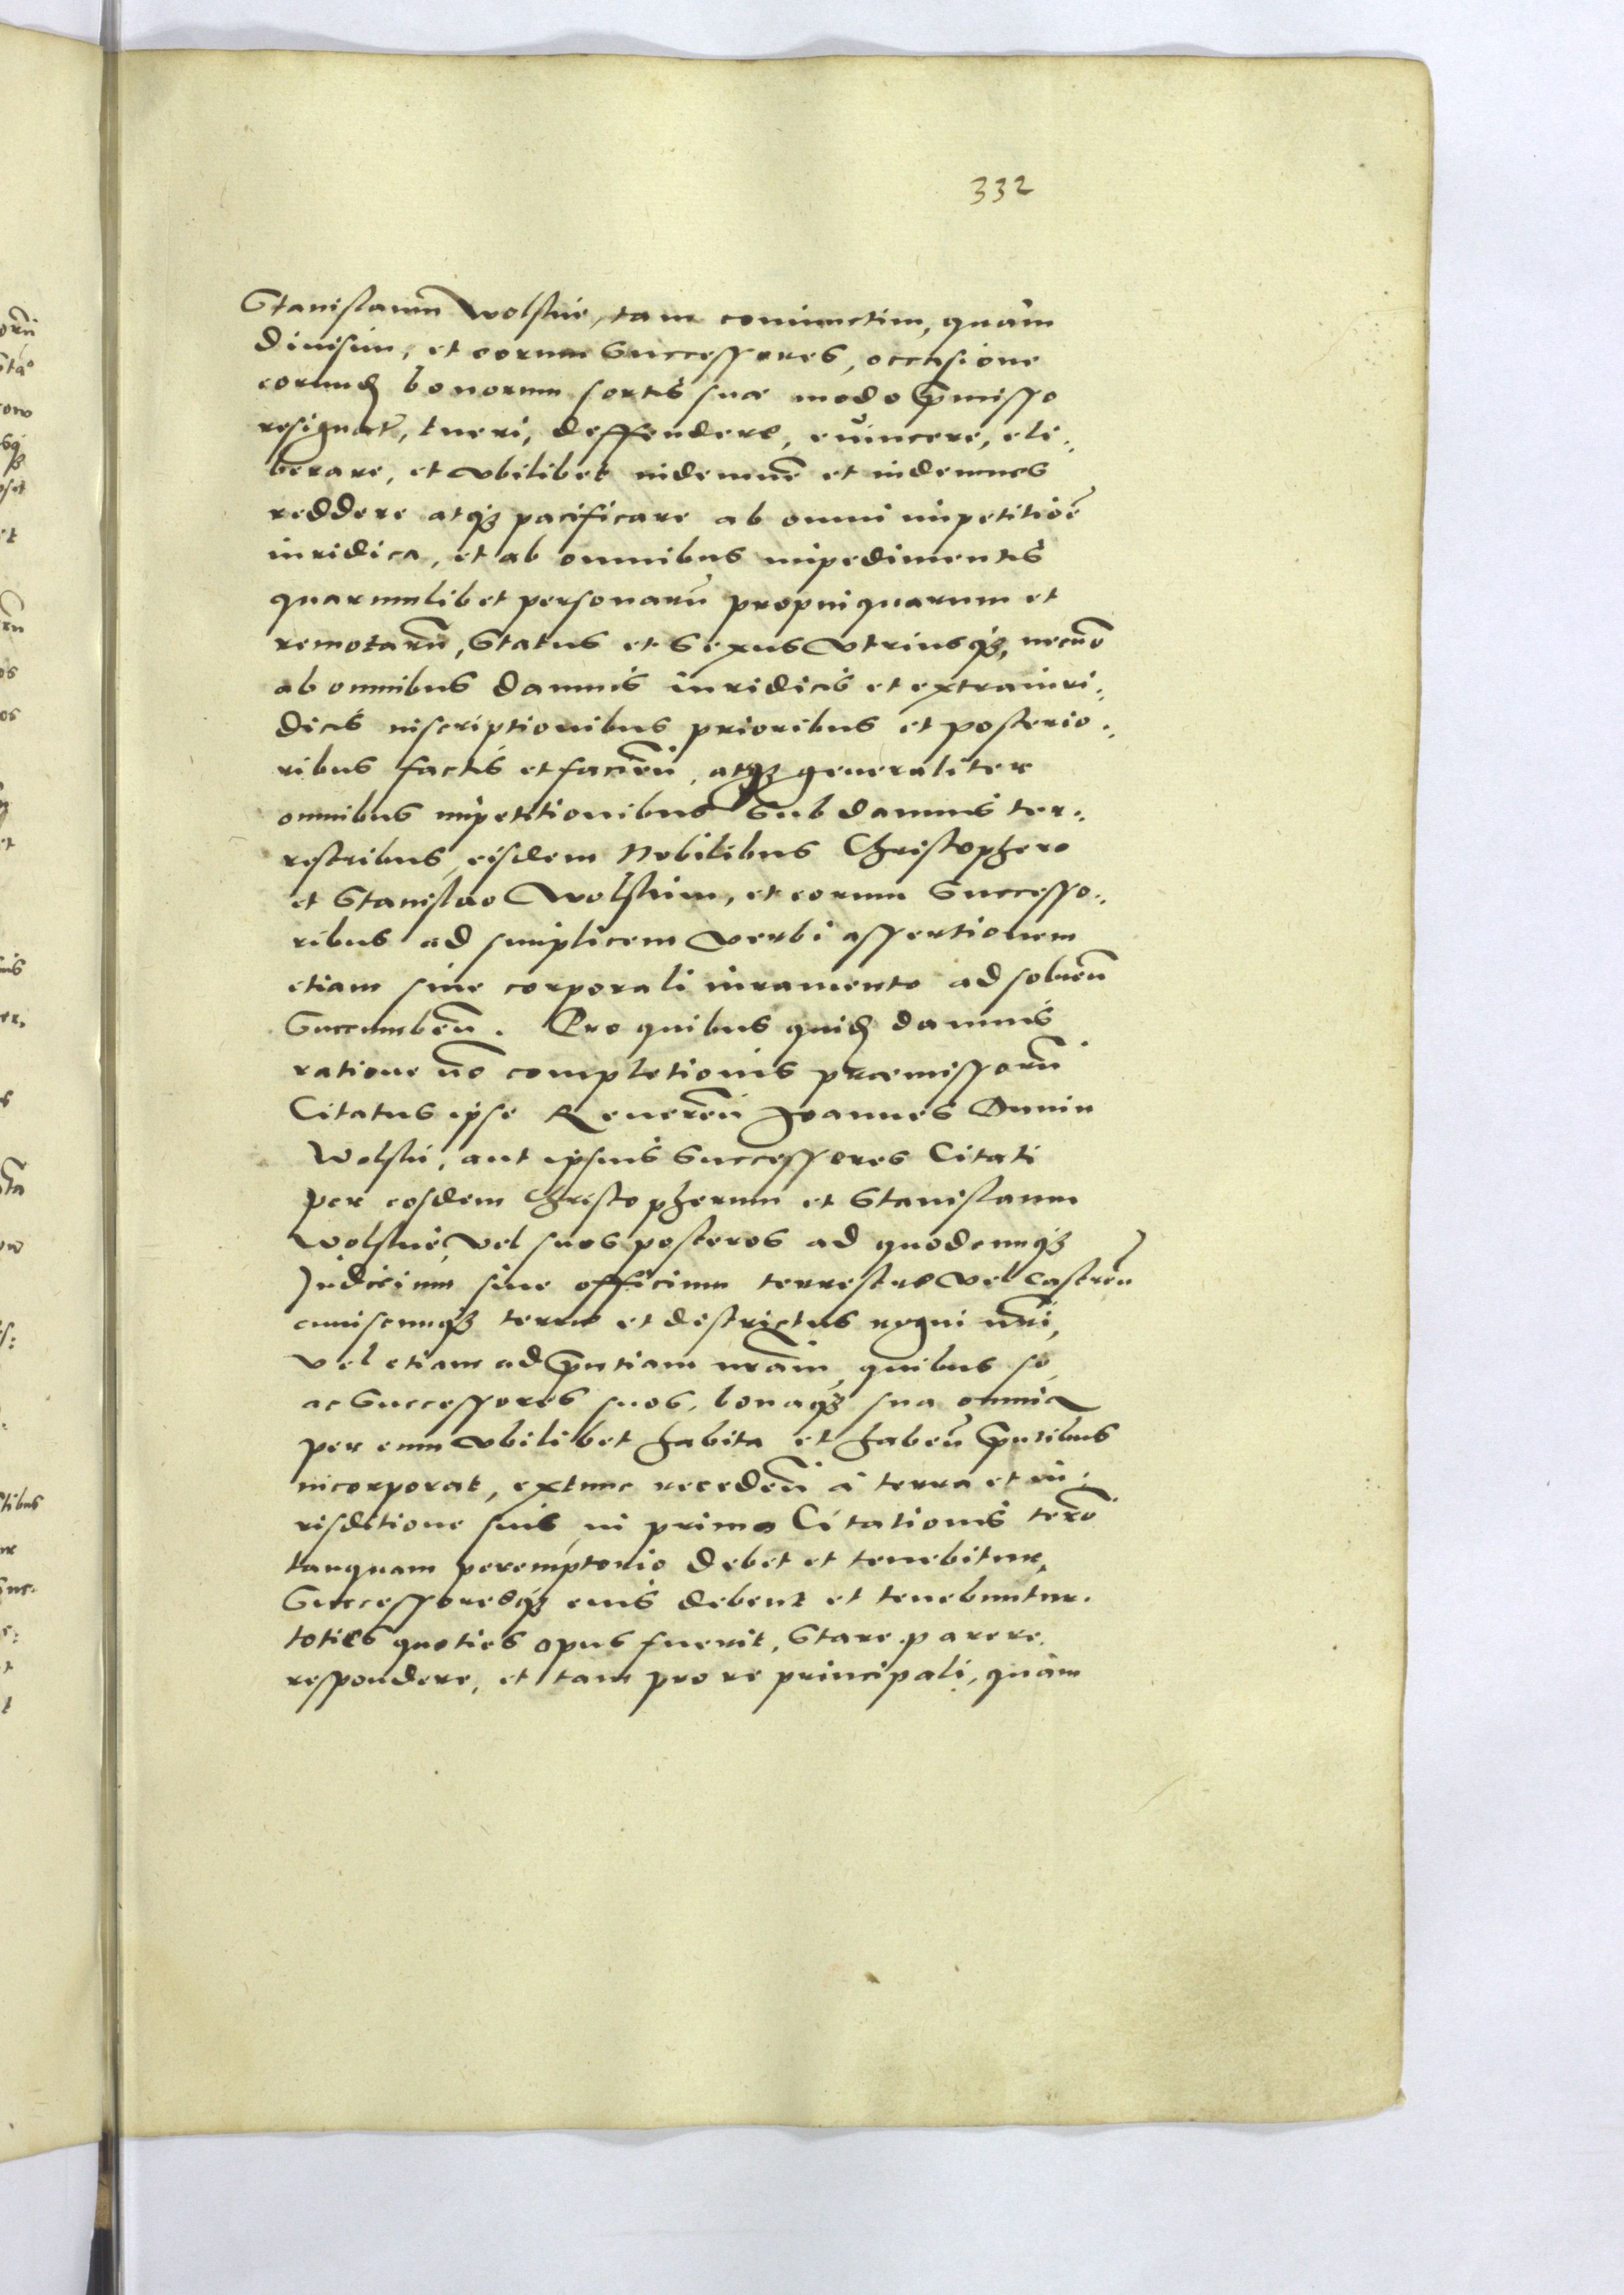 332
Stanislaum Wolskie, tam coniunctim, quàm
diuisim, et eorum Successores, occasione
eorund bonorum sortis suæ modo p̄misso
resignat, tueri, deffendere, euincere, eli:
berare, et vbilibet indemnē et indemnes
reddere atq₃ pacificare ab omni impetitiōe
iuridica, et ab omnibus impedimentis
quarumlibet personarū propinquarum et
remotarū, Status et Sexus vtriusq₃, necnō
ab omnibus damnis iuridicis et extraiuri:
dicis inscriptionibus prioribus et posterio:
ribus factis et faciēn, atq₃ generaliter
omnibus impetitionibus Sub damnis ter:
restribus, eisdem Nobilibus Christophero
et Stanislao Wolskim, et eorum Successo:
ribus ad simplicem verbi assertionem
etiam sine corporali iuramento ad soluēn
Succumbēn. Pro quibus quid damnis
ratione nō completionis præmissorū
Citatus ipse Reuerēn Joannes Dunin
Wolski, aut ipsius Successores Citati
per eosdem Christopherum et Stanislaum
Wolskie, vel suos posteros ad quodcunq₃
Judicium siue officium terrestre vel castrēn
cuiuscunq₃ terræ et districtus regni nr̄i,
vel etiam ad p̄ntiam nr̄am, quibus se,
ac Successores suos, bonaq₃ sua omnia
per eum vbilibet habita et habēn p̄ntibus
incorporat, extunc recedēn à terra et iu:
risditione suis, in primo Citationis term̄o
tanquam peremptorio debet et tenebitur,
Successoresq₃ eius debent et tenebuntur.
toties quoties opus fuerit, Stare parere.
respondere, et tam pro re principali, quàm